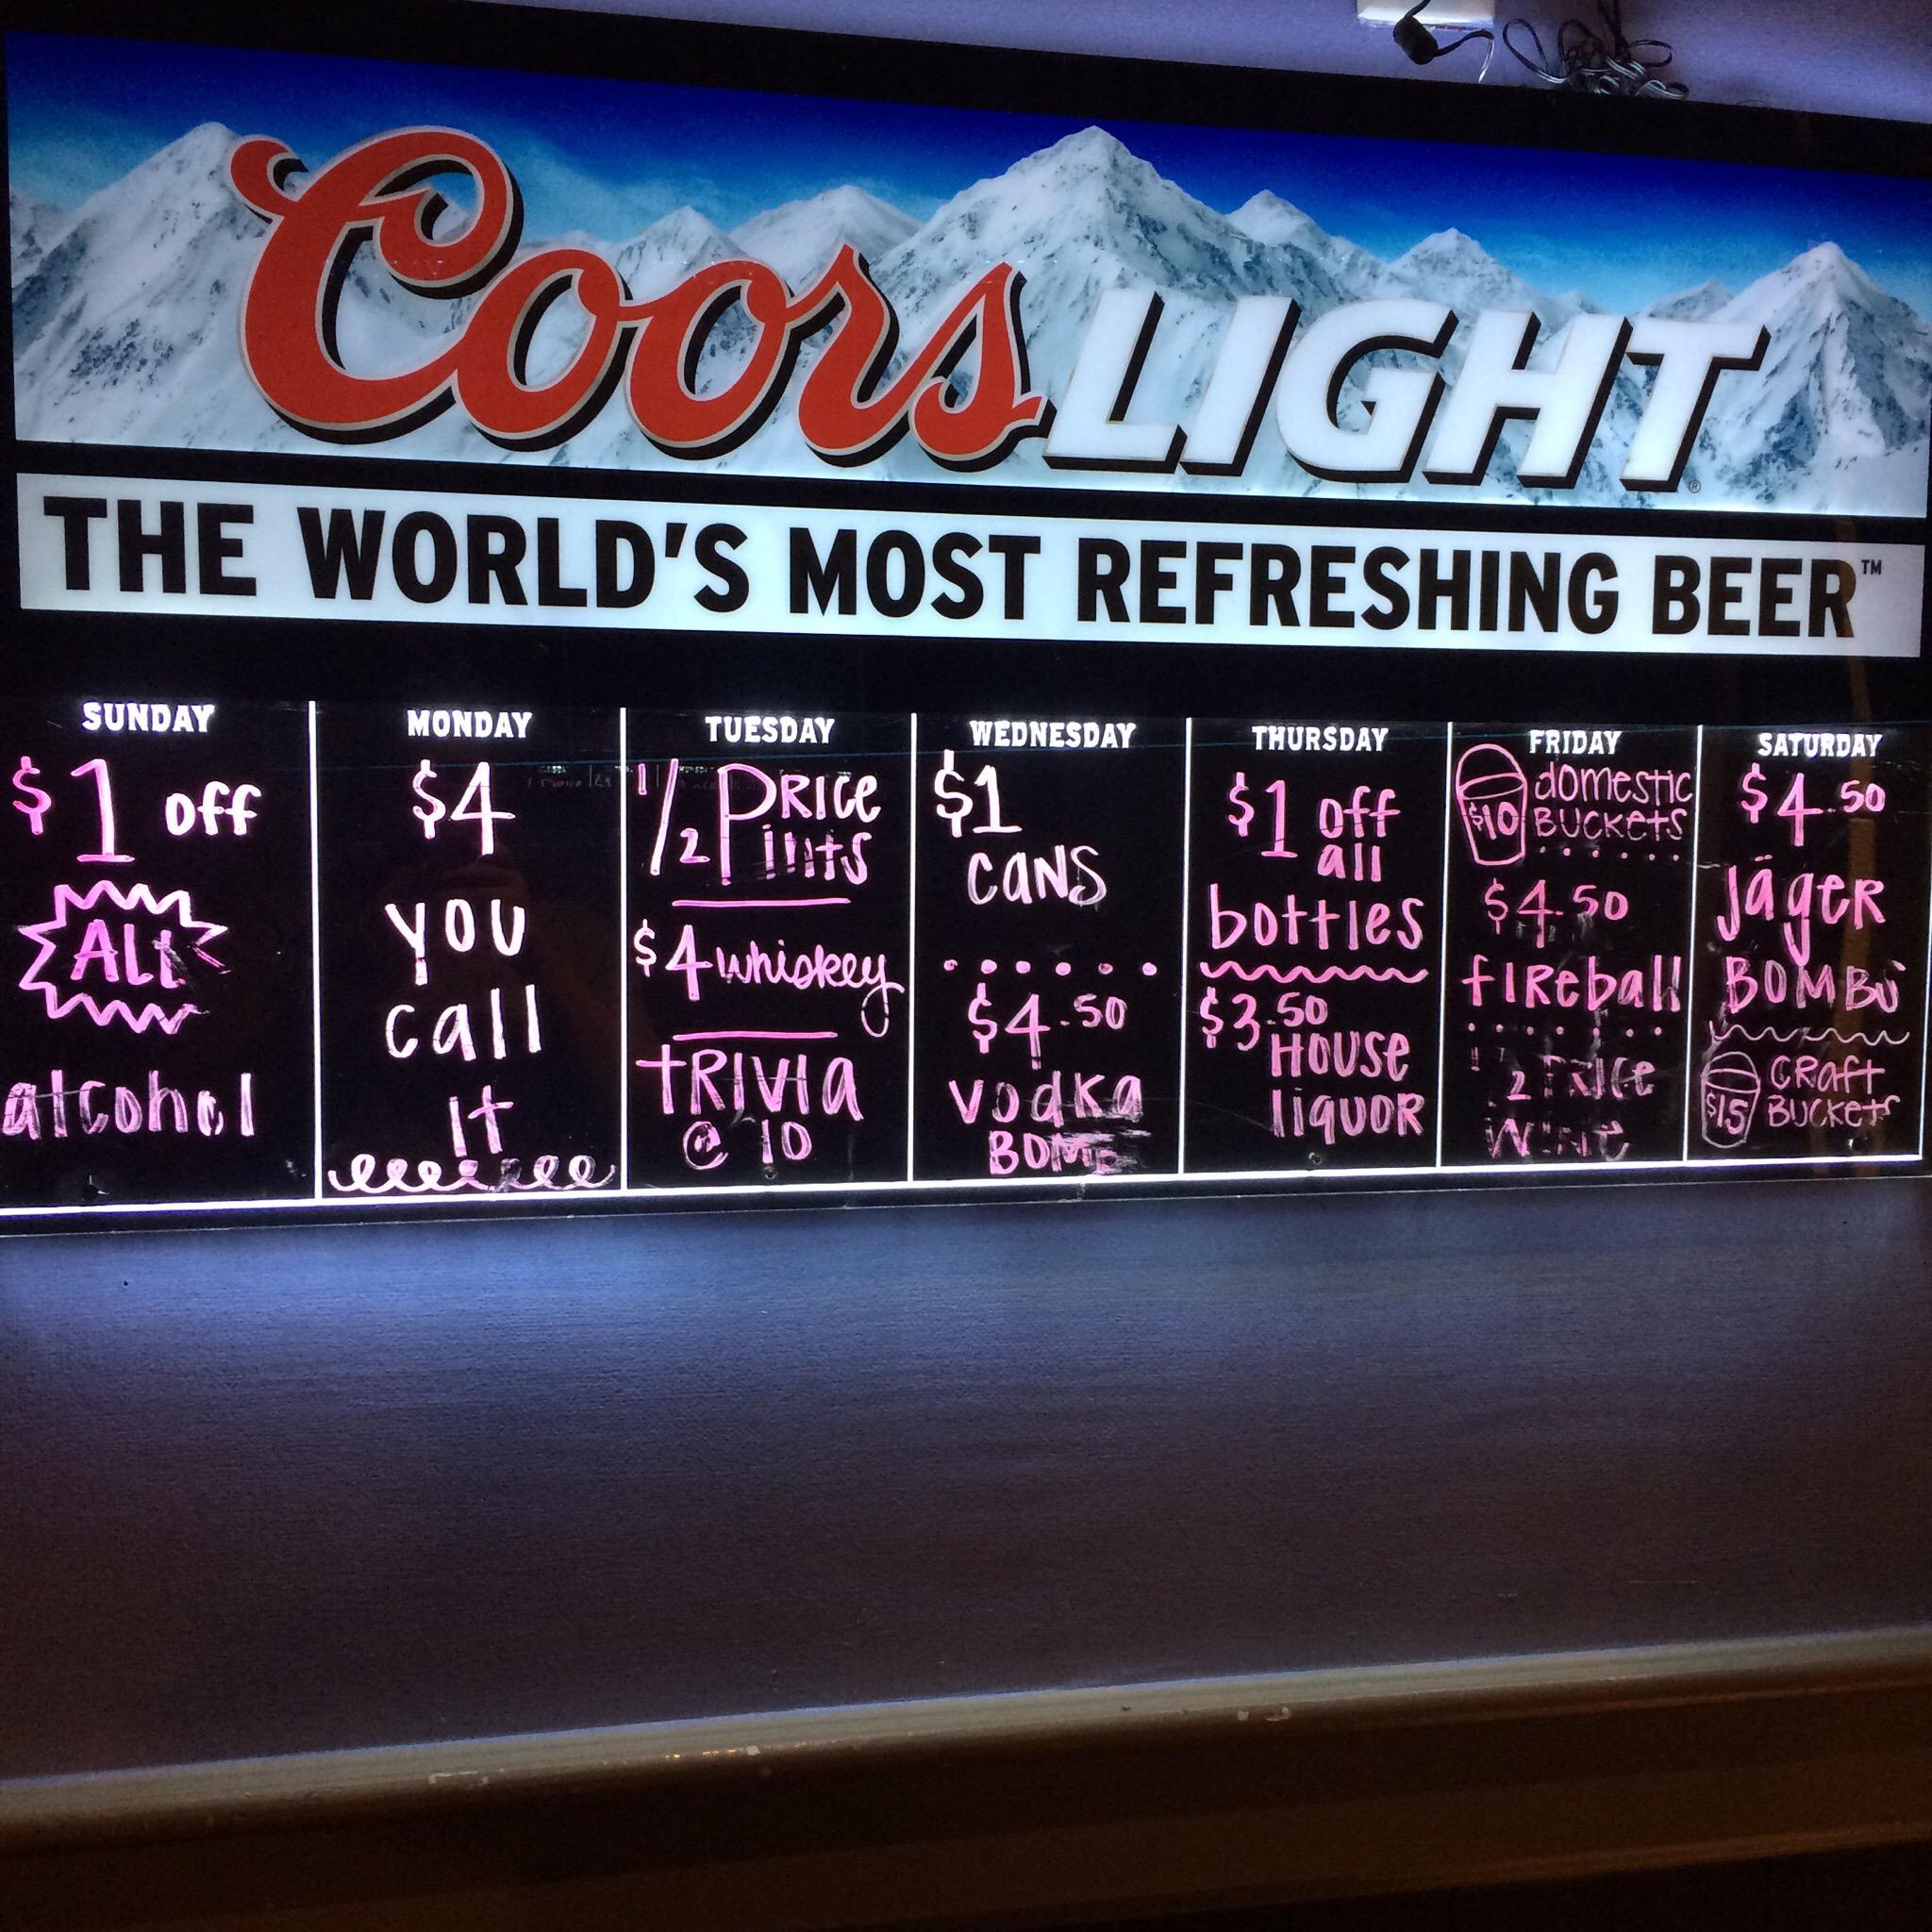 Coors LIGHT
THE WORLD'S MOST REFRESHING BEER™
SUNDAY
$1 off
ALL
alcohol
MONDAY
$4
you
call
it
TUESDAY
1/2 PRice
Pints
$4 whiskey
tRIVIA
@ 10
WEDNESDAY
$1
cans
$4.50
vodka
BOMB
THURSDAY
$1 off
all
bottles
$3.50
House
liquoR
FRIDAY
$10 domestic
BUCKETS
$4.50
fIReball
1/2 PRice
wine
SATURDAY
$4.50
Jäger
BOMBS
$15 CRaft
BUCKets